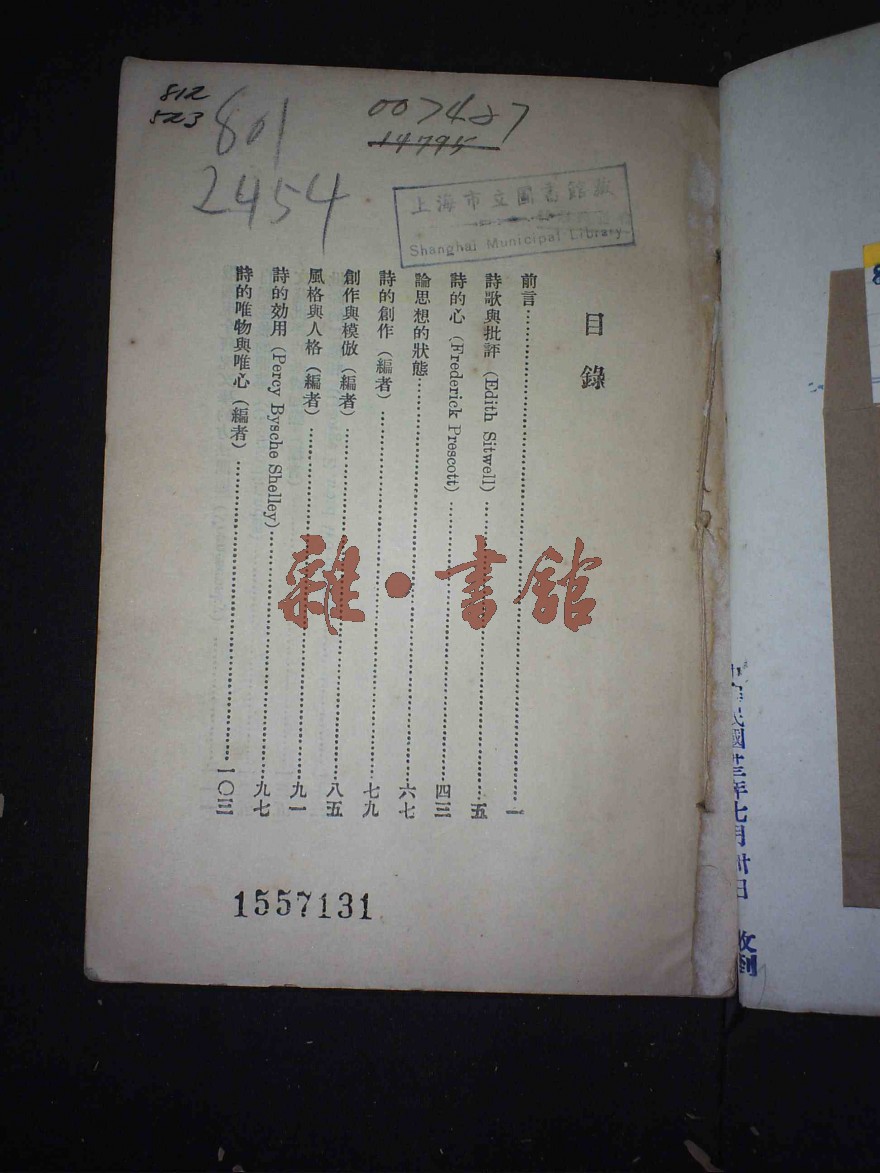 812
523
801
2454
007487
14795
上海市立圖書館
Shanghai Municipal Library
目錄
前言 一
詩歌與批評（Edith Sitwell） 五
詩的心（Frederick Prescott） 四三
論思想的狀態 六七
詩的創作（編者） 七九
創作與模倣（編者） 八五
風格與人格（編者） 九一
詩的効用（Percy Bysche Shelley） 九七
詩的唯物與唯心（編者） 一〇三
雜·書館
1557131
中華民國廿三年七月卅日 收到